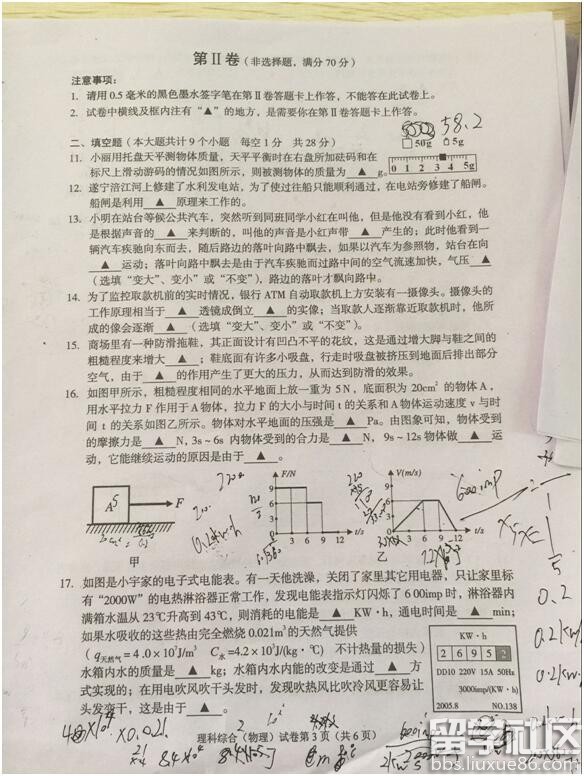 第 II 卷（非选择题，满分 70 分）
注意事项：
1. 请用 0.5 毫米的黑色墨水签字笔在第Ⅱ卷答题卡上作答，不能答在此试卷上。
2. 试卷中横线及框内注有“▲”的地方，是需要你在第Ⅱ卷答题卡上作答。
58.2
50g 5g
二、填空题（本大题共计 9 个小题 每空 1 分 共 28 分）
11. 小丽用托盘天平测物体质量，天平平衡时在右盘所加砝码和在
标尺上滑动游码的情况如图所示，则被测物体的质量为 ▲ g。
0 1 2 3 4 5g
12. 遂宁涪江河上修建了水利发电站，为了使过往船只能顺利通过，在电站旁修建了船闸。
船闸是利用 ▲ 原理来工作的。
13. 小明在站台等候公共汽车，突然听到同班同学小红在叫他，但是他没有看到小红，他
是根据声音的 ▲ 来判断的，叫他的声音是小红声带 ▲ 产生的；此时他看到一
辆汽车疾驰向东而去，随后路边的落叶向路中飘去，如果以汽车为参照物，站台在向
▲ 运动；落叶向路中飘去是由于汽车疾驰而过路中间的空气流速加快，气压 ▲
（选填“变大”、变小”或“不变”），路边的落叶才飘向路中。
14. 为了监控取款机前的实时情况，银行 ATM 自动取款机上方安装有一摄像头。摄像头的
工作原理相当于 ▲ 透镜成倒立 ▲ 的实像；当取款人逐渐靠近取款机时，他所
成的像会逐渐 ▲ （选填“变大”、变小”或“不变”）。
15. 商场里有一种防滑拖鞋，其正面设计有凹凸不平的花纹，这是通过增大脚与鞋之间的
粗糙程度来增大 ▲ ；鞋底面有许多小吸盘，行走时吸盘被挤压到地面后排出部分
空气，由于 ▲ 的作用产生了更大的压力，从而达到防滑的效果。
16. 如图甲所示，粗糙程度相同的水平地面上放一重为 5N，底面积为 20cm² 的物体 A，
用水平拉力 F 作用于 A 物体，拉力 F 的大小与时间 t 的关系和 A 物体运动速度 v 与时
间 t 的关系如图乙所示。物体对水平地面的压强是 ▲ Pa。由图象可知，物体受到
的摩擦力是 ▲ N, 3s～6s 内物体受到的合力是 ▲ N, 9s～12s 物体做 ▲ 运
动，它能继续运动的原因是由于 ▲ 。
A F
甲
F/N
9
6
3
0 3 6 9 12 t/s
V(m/s)
9
6
3
0 3 6 9 12 t/s
乙
600imp
17. 如图是小宇家的电子式电能表。有一天他洗澡，关闭了家里其它用电器，只让家里标
有“2000W”的电热淋浴器正常工作，发现电能表指示灯闪烁了 600imp 时，淋浴器内
满箱水温从 23℃升高到 43℃，则消耗的电能是 ▲ KW·h，通电时间是 ▲ min；
如果水吸收的这些热由完全燃烧 0.021m³ 的天然气提供
（q天然气＝4.0×10⁷J/m³ C水=4.2×10³J/(kg·℃) 不计热量的损失）
水箱内水的质量是 ▲ kg；水箱内水内能的改变是通过 ▲ 方
式实现的；在用电吹风吹干头发时，发现吹热风比吹冷风更容易让
头发变干，这是由于 ▲ 。
KW·h
2 6 9 5 2
DD10 220V 15A 50Hz
3000imp/(KW·h)
2005.8 NO.138
0.2
理科综合（物理）试卷第 3 页（共 6 页）
留学社区
bbs.liuxue86.com